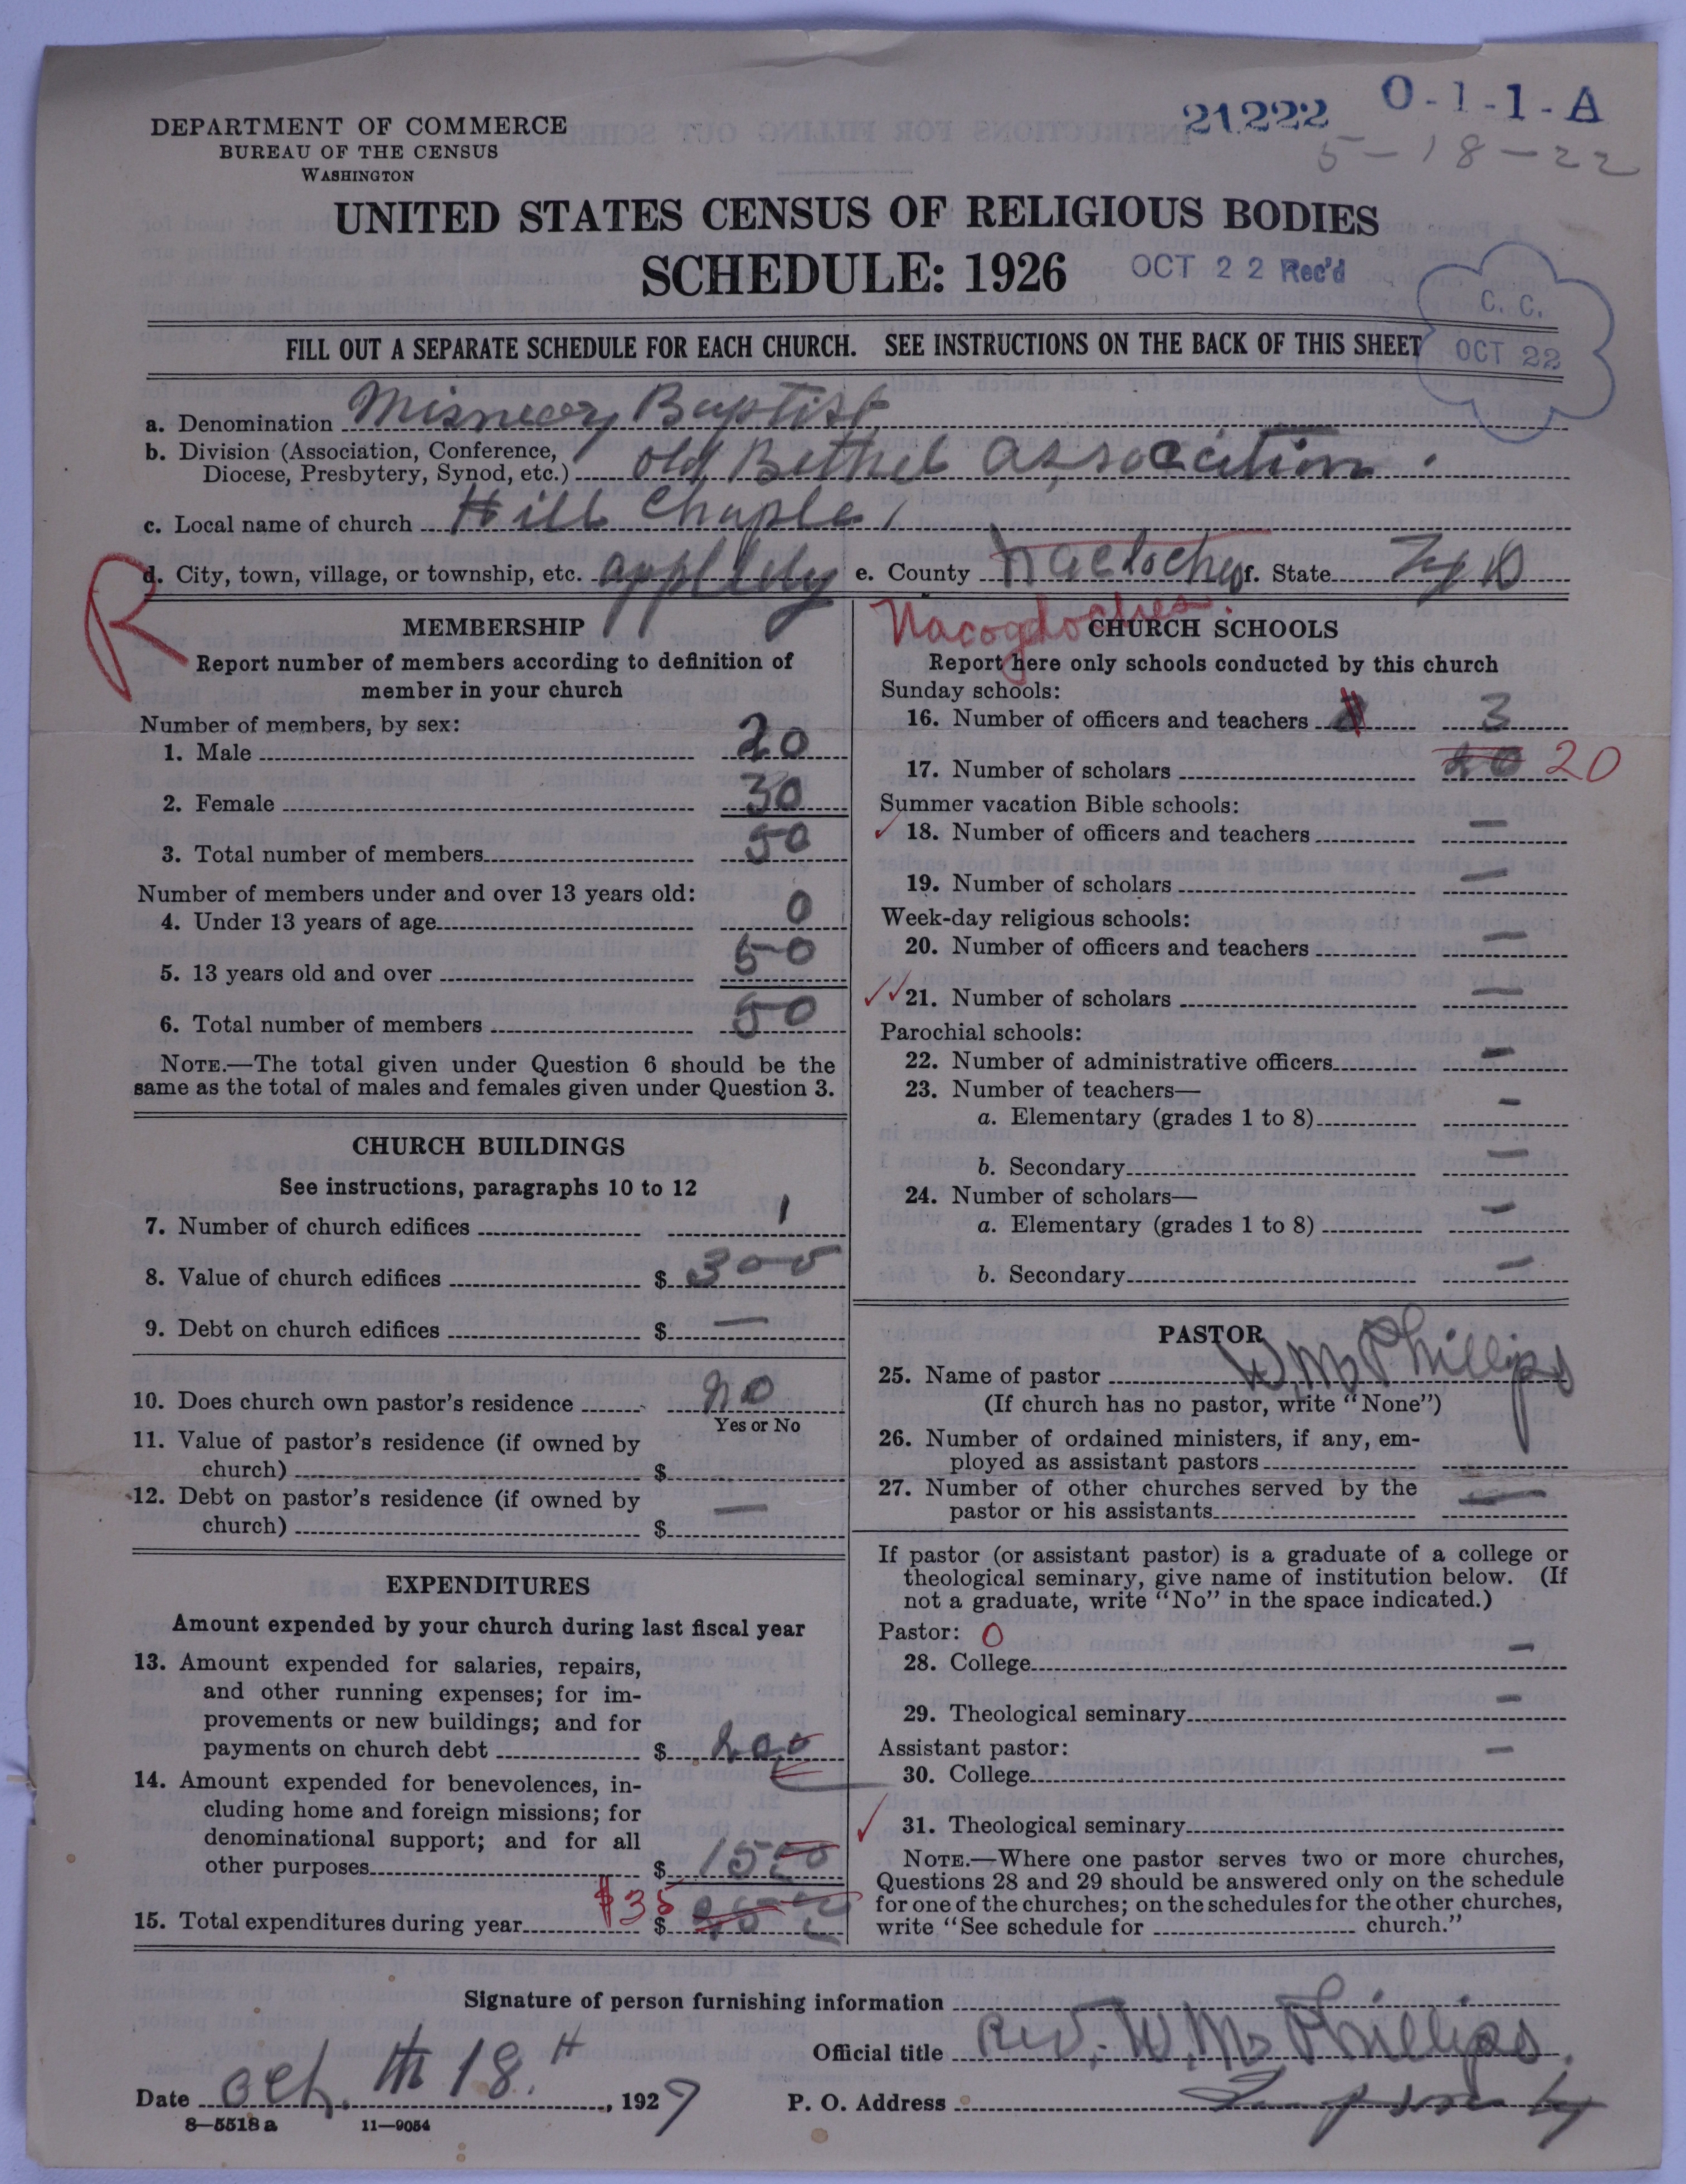 21222 0-1-1-A
5-18-22
DEPARTMENT OF COMMERCE
BUREAU OF THE CENSUS
WASHINGTON
UNITED STATES CENSUS OF RELIGIOUS BODIES
SCHEDULE: 1926 OCT 22 Rec'd
C. C.
OCT 22
FILL OUT A SEPARATE SCHEDULE FOR EACH CHURCH. SEE INSTRUCTIONS ON THE BACK OF THIS SHEET
a. Denomination Baptist
b. Division (Association, Conference,
Diocese, Presbytery, Synod, etc.) old Bethel Association
c. Local name of church Hill Chaple
R
d. City, town, village, or township, etc. e. County f. State
Nacogdoches.
MEMBERSHIP
Report number of members according to definition of
member in your church
Number of members, by sex:
1. Male 20
2. Female 30
3. Total number of members 50
Number of members under and over 13 years old:
4. Under 13 years of age 0
5. 13 years old and over 50
6. Total number of members 50
NOTE.—The total given under Question 6 should be the
same as the total of males and females given under Question 3.
CHURCH BUILDINGS
See instructions, paragraphs 10 to 12
7. Number of church edifices 1
8. Value of church edifices $ 300
9. Debt on church edifices $ —
10. Does church own pastor's residence no
Yes or No
11. Value of pastor's residence (if owned by
church) $
12. Debt on pastor's residence (if owned by
church) $ —
EXPENDITURES
Amount expended by your church during last fiscal year
13. Amount expended for salaries, repairs,
and other running expenses; for im-
provements or new buildings; and for
payments on church debt $ 200
14. Amount expended for benevolences, in-
cluding home and foreign missions; for
denominational support; and for all
other purposes $ 1500
15. Total expenditures during year $35 $
CHURCH SCHOOLS
Report here only schools conducted by this church
Sunday schools:
16. Number of officers and teachers 3
17. Number of scholars 20 20
Summer vacation Bible schools:
18. Number of officers and teachers —
19. Number of scholars —
Week-day religious schools:
20. Number of officers and teachers —
21. Number of scholars —
Parochial schools:
22. Number of administrative officers —
23. Number of teachers—
a. Elementary (grades 1 to 8) —
b. Secondary —
24. Number of scholars—
a. Elementary (grades 1 to 8) —
b. Secondary —
PASTOR
25. Name of pastor W. M. Phillips
(If church has no pastor, write "None")
26. Number of ordained ministers, if any, em-
ployed as assistant pastors
27. Number of other churches served by the
pastor or his assistants —
If pastor (or assistant pastor) is a graduate of a college or
theological seminary, give name of institution below. (If
not a graduate, write "No" in the space indicated.)
Pastor: 0
28. College —
29. Theological seminary —
Assistant pastor:
30. College —
31. Theological seminary
NOTE.—Where one pastor serves two or more churches,
Questions 28 and 29 should be answered only on the schedule
for one of the churches; on the schedules for the other churches,
write "See schedule for church."
Signature of person furnishing information
Official title Rev. W. M. Phillips.
Date Oct. th 18. , 1927 P. O. Address
8—5518 a 11—9054